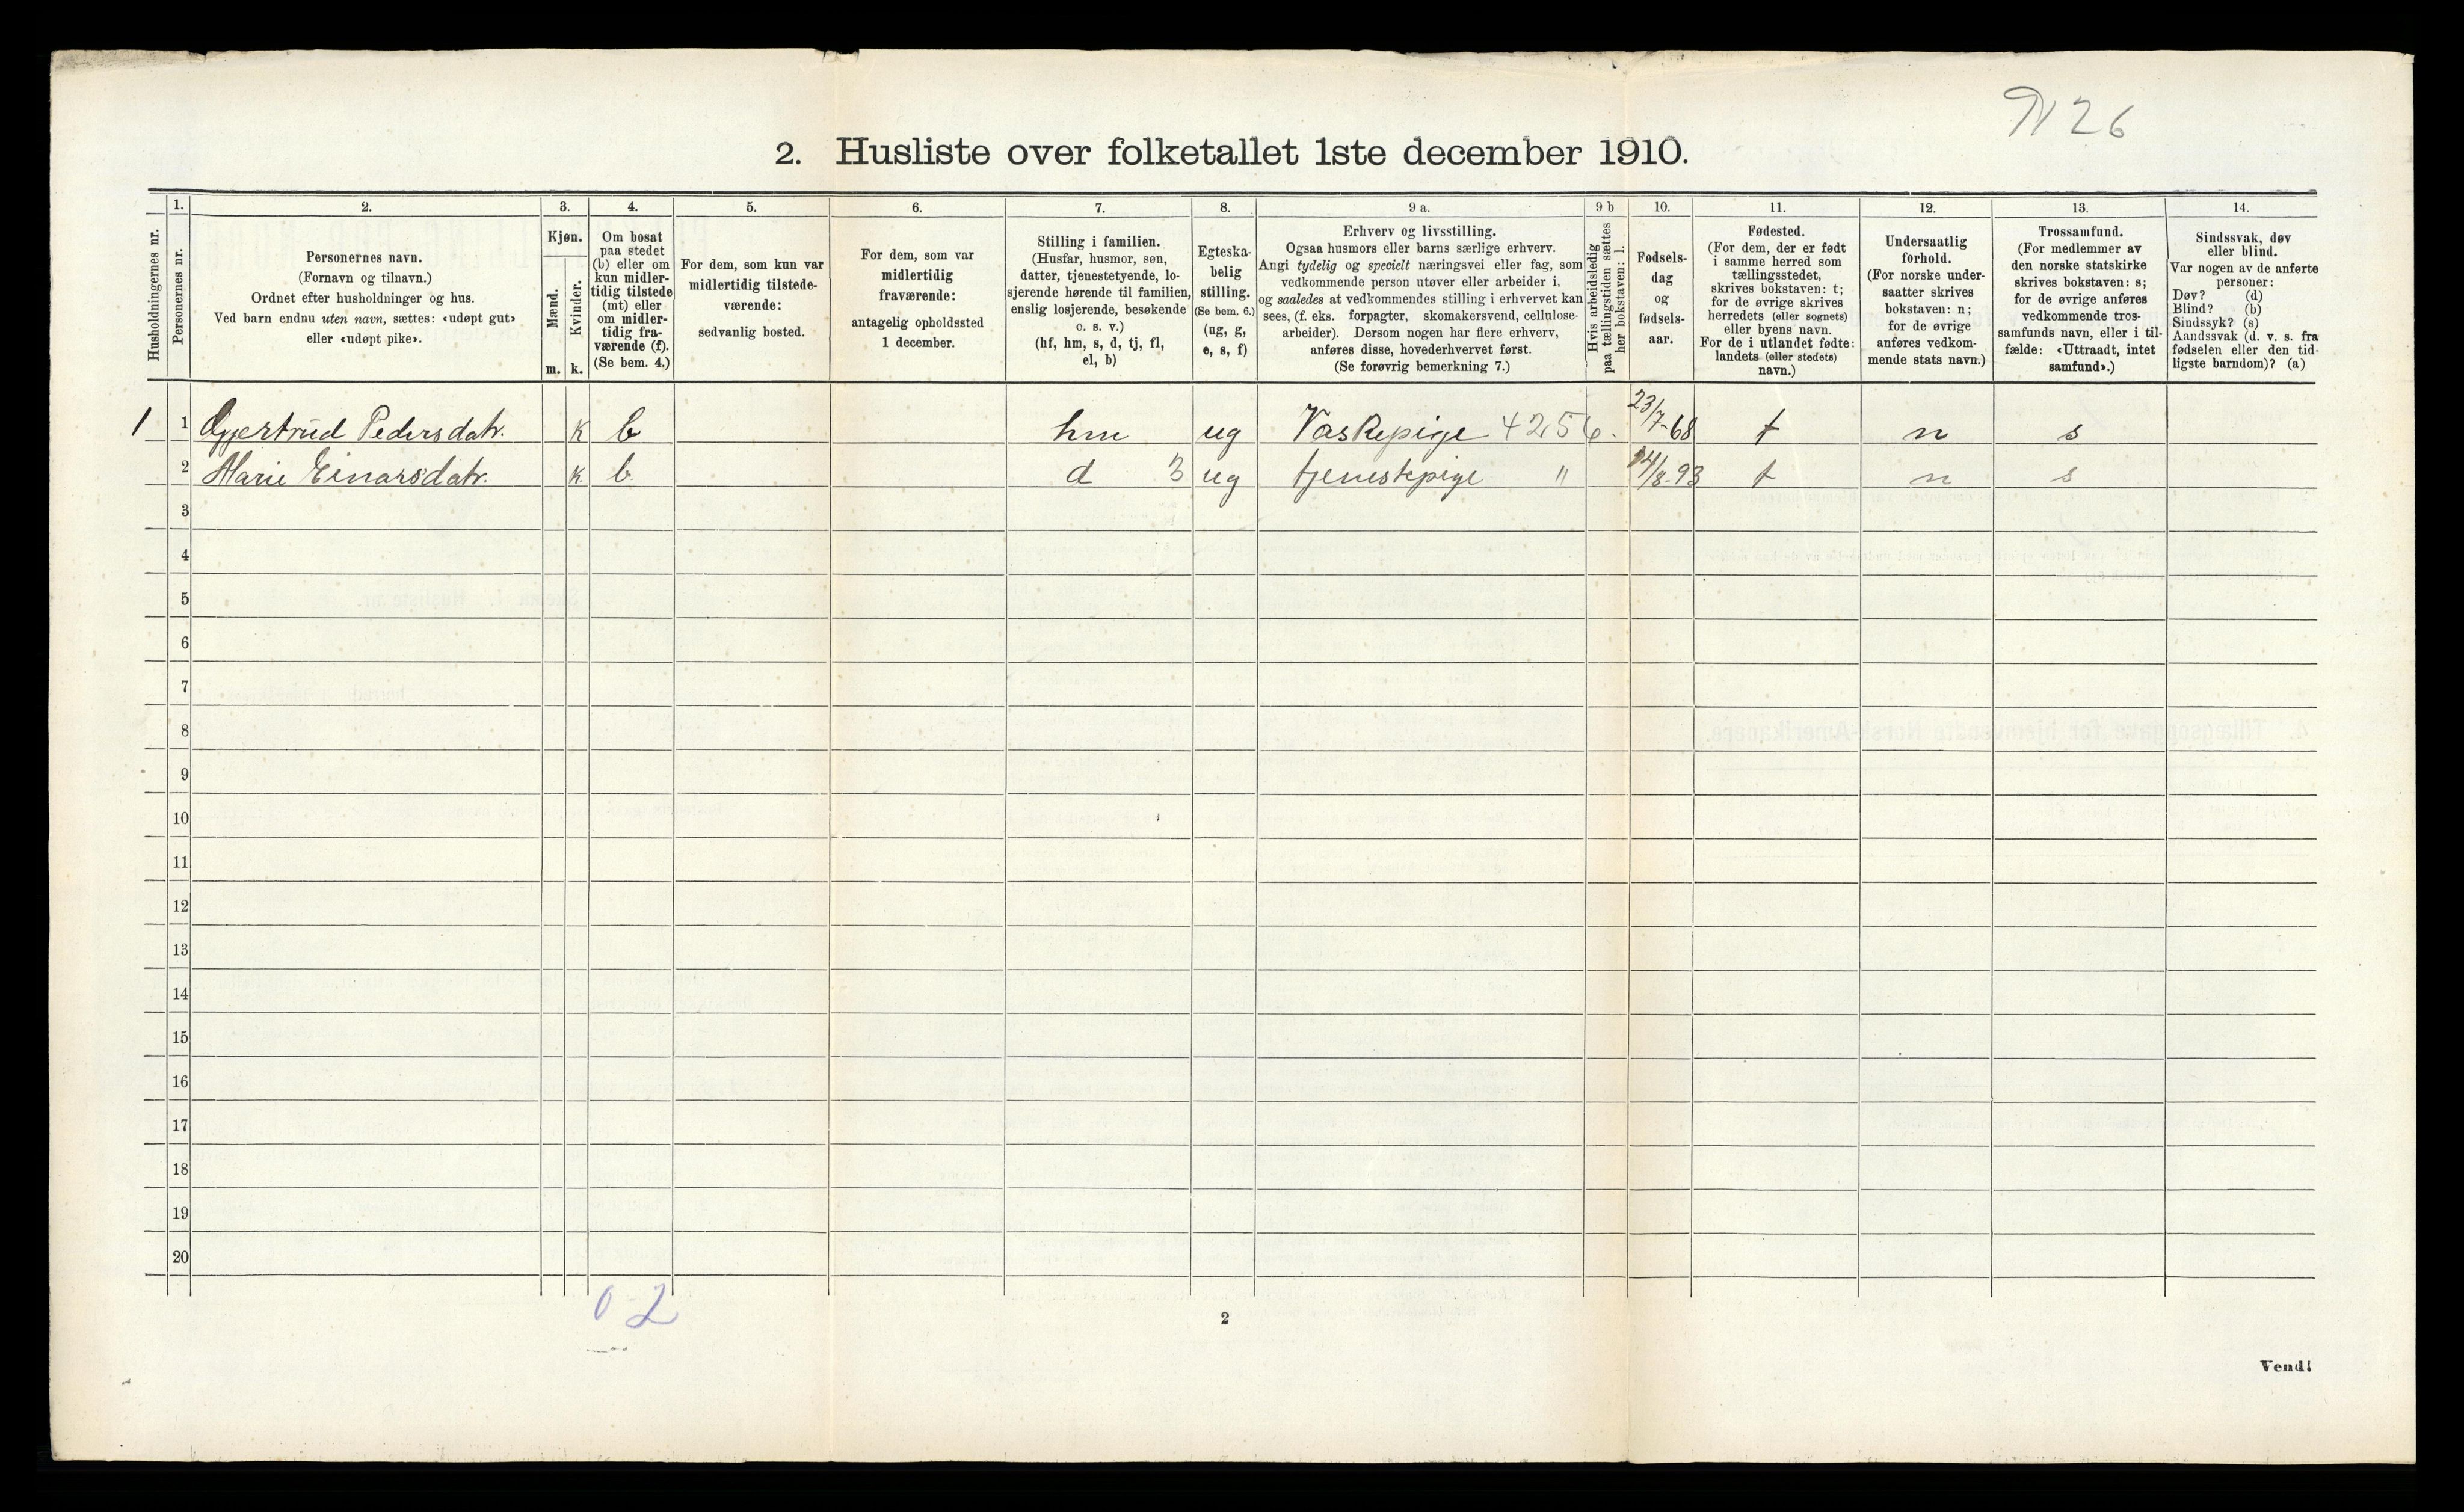 N 26
2. Husliste over folketallet 1ste december 1910.
Husholdningernes nr.
1.
Personernes nr.
2.
Personernes navn.
(Fornavn og tilnavn.)
Ordnet efter husholdninger og hus.
Ved barn endnu uten navn, sættes: «udøpt gut»
eller «udøpt pike».
3.
Kjøn.
Mænd.
Kvinder.
m. k.
4.
Om bosat
paa stedet
(b) eller om
kun midler-
tidig tilstede
(mt) eller
om midler-
tidig fra-
værende (f).
(Se bem. 4.)
5.
For dem, som kun var
midlertidig tilstede-
værende:
sedvanlig bosted.
6.
For dem, som var
midlertidig
fraværende:
antagelig opholdssted
1 december.
7.
Stilling i familien.
(Husfar, husmor, søn,
datter, tjenestetyende, lo-
sjerende hørende til familien,
enslig losjerende, besøkende
o. s. v.)
(hf, hm, s, d, tj, fl,
el, b)
8.
Egteska-
belig
stilling.
(Se bem. 6.)
(ug, g,
e, s, f)
9 a.
Erhverv og livsstilling.
Ogsaa husmors eller barns særlige erhverv.
Angi tydelig og specielt næringsvei eller fag, som
vedkommende person utøver eller arbeider i,
og saaledes at vedkommendes stilling i erhvervet kan
sees, (f. eks. forpagter, skomakersvend, cellulose-
arbeider). Dersom nogen har flere erhverv,
anføres disse, hovederhvervet først.
(Se forøvrig bemerkning 7.)
9 b
Hvis arbeidsledig
paa tællingstiden sættes
her bokstaven: l.
10.
Fødsels-
dag
og
fødsels-
aar.
11.
Fødested.
(For dem, der er født
i samme herred som
tællingsstedet,
skrives bokstaven: t;
for de øvrige skrives
herredets (eller sognets)
eller byens navn.
For de i utlandet fødte:
landets (eller stedets)
navn.)
12.
Undersaatlig
forhold.
(For norske under-
saatter skrives
bokstaven: n;
for de øvrige
anføres vedkom-
mende stats navn.)
13.
Trossamfund.
(For medlemmer av
den norske statskirke
skrives bokstaven: s;
for de øvrige anføres
vedkommende tros-
samfunds navn, eller i til-
fælde: «Uttraadt, intet
samfund».)
14.
Sindssvak, døv
eller blind.
Var nogen av de anførte
personer:
Døv? (d)
Blind? (b)
Sindssyk? (s)
Aandssvak (d. v. s. fra
fødselen eller den tid-
ligste barndom)? (a)
1 1 Gjertrud Pedersdatr. k b hm ug Vaskepige 4256. 23/7-68 t n s
2 Marie Einarsdatr. k b d 3 ug tjenestepige " 14/8-93 t n s
3
4
5
6
7
8
9
10
11
12
13
14
15
16
17
18
19
20
0 2
2
Vend!